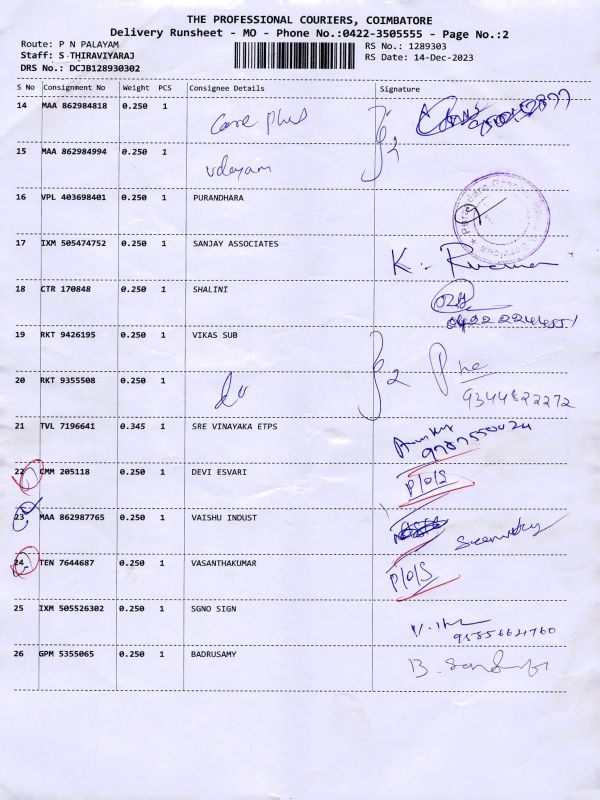 THE PROFESSIONAL COURIERS, COIMBATORE
Delivery Runsheet - MO - Phone No.:0422-3505555 - Page No.:2
Route: P N PALAYAM
Staff: S THIRAVIYARAJ
DRS No.: DCJB128930302
RS No.: 1289303
RS Date: 14-Dec-2023
S No Consignment No Weight PCS Consignee Details Signature
14 MAA 862984818 0.250 1 Care plus
15 MAA 862984994 0.250 1 Udayam
16 VPL 403698401 0.250 1 PURANDHARA
17 IXM 505474752 0.250 1 SANJAY ASSOCIATES
18 CTR 170848 0.250 1 SHALINI
19 RKT 9426195 0.250 1 VIKAS SUB
20 RKT 9355508 0.250 1 9344822272
21 TVL 7196641 0.345 1 SRE VINAYAKA ETPS
22 CMM 205118 0.250 1 DEVI ESVARI P/O/S
23 MAA 862987765 0.250 1 VAISHU INDUST
24 TEN 7644687 0.250 1 VASANTHAKUMAR P/O/S
25 IXM 505526302 0.250 1 SGNO SIGN
26 GPM 5355065 0.250 1 BADRUSAMY